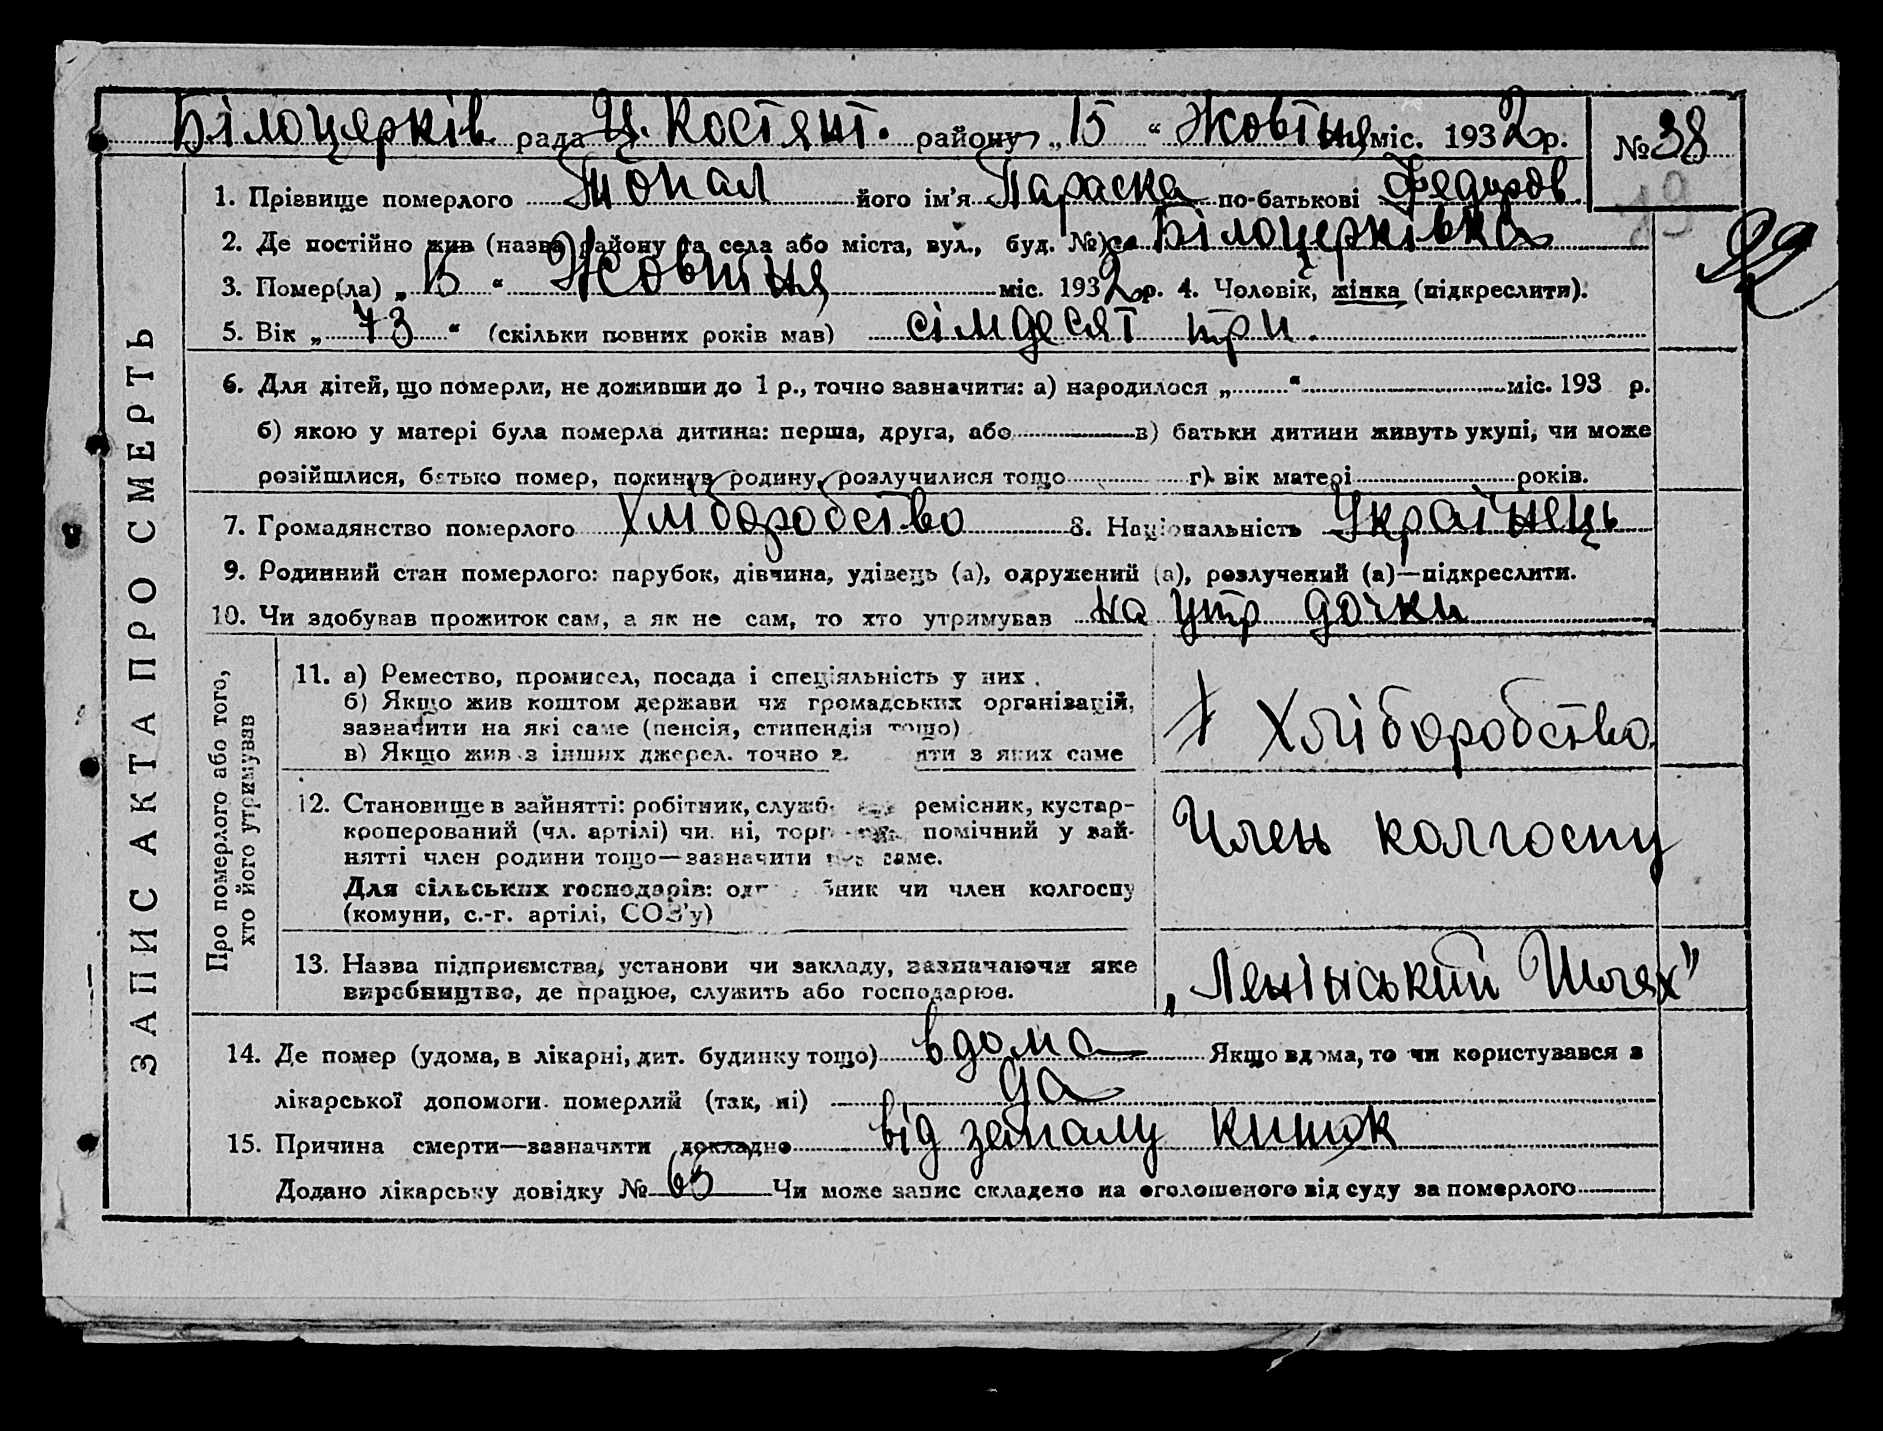 Білоцерків рада Ц. Костянт. району „ 15 “ Жовтня міс. 1932 р. № 38
19
1. Прізвище померлого Топал його ім'я Параска по-батькові Федоров
2. Де постійно жив (назва району та села або міста, вул., буд. №) с. Білоцерківка
3. Помер(ла) „ 15 “ Жовтня міс. 1932 р. 4. Чоловік, жінка (підкреслити).
5. Вік „ 73 “ (скільки повних років мав) сімдесят три.
6. Для дітей, що померли, не доживши до 1 р., точно зазначити: а) народилося „ “ міс. 193 р.
б) якою у матері була померла дитина: перша, друга, або в) батьки дитини живуть укупі, чи може
розійшлися, батько помер, покинув родину, розлучилися тощо г) вік матері років.
7. Громадянство померлого хліборобство 8. Національність Українець
9. Родинний стан померлого: парубок, дівчина, удівець (а), одружений (а), розлучений (а)—підкреслити.
10. Чи здобував прожиток сам, а як не сам, то хто утримував на утр дочки
ЗАПИС АКТА ПРО СМЕРТЬ
Про померлого або того,
хто його утримував
11. а) Ремество, промисел, посада і спеціяльність у них.
б) Якщо жив коштом держави чи громадських організацій,
зазначити на які саме (пенсія, стипендія тощо)
в) Якщо жив з інших джерел. точно з яких саме
Хліборобство
12. Становище в зайнятті: робітник, служб ремісник, кустар-
кооперований (чл. артілі) чи ні, торг помічний у зай-
нятті член родини тощо—зазначити саме.
Для сільських господарів: од бник чи член колгоспу
(комуни, с.-г. артілі, СОЗ'у)
Член колгоспу
13. Назва підприємства, установи чи закладу, зазначаючи яке
виробництво, де працює, служить або господарює.
„Ленінський Шлях"
14. Де помер (удома, в лікарні, дит. будинку тощо) вдома Якщо вдома, то чи користувався з
лікарської допомоги померлий (так, ні) да
15. Причина смерти—зазначити докладно від запалу кишок
Додано лікарську довідку № 65 Чи може запис складено на оголошеного від суду за померлого